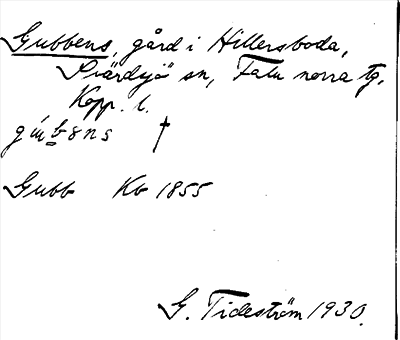 Gubbens, gård i Hillersboda,
Svärdsjö sn, Falu norra tg,
Kopp. l.
gúbens †
Gubb Kb 1855
G. Tideström 1930.